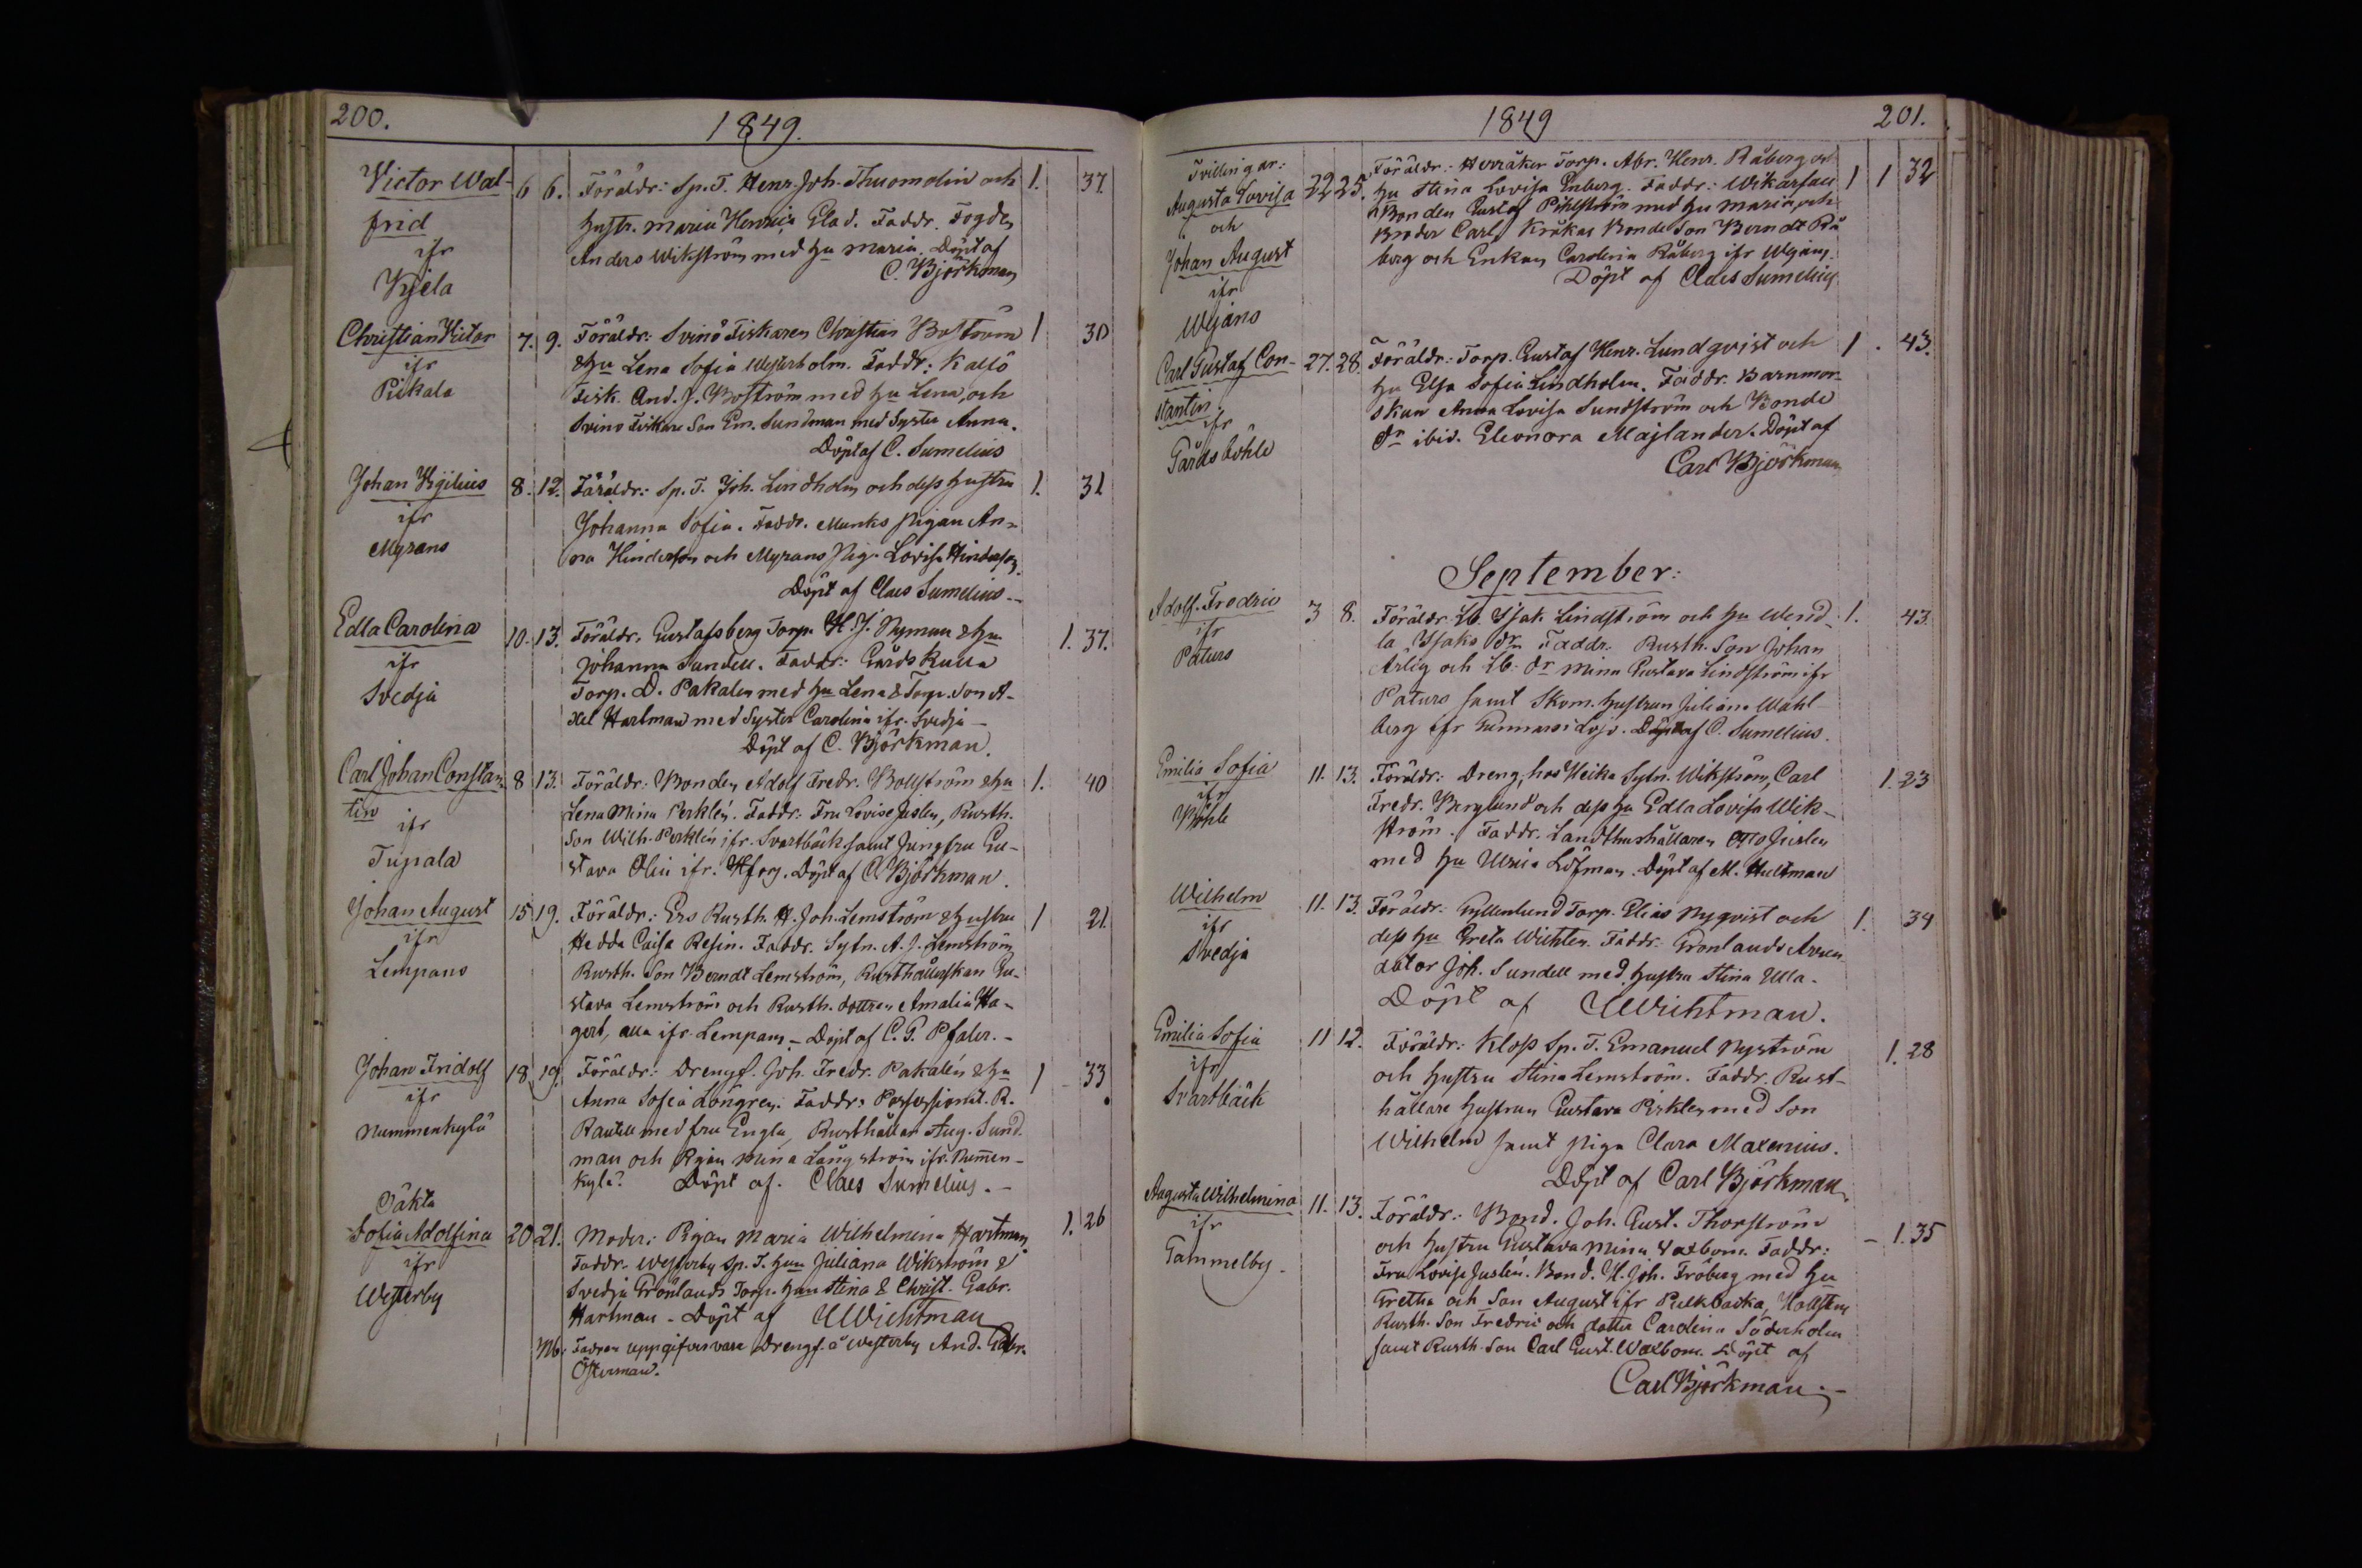 200.
1849.
Victor Wal-
frid
ifr
Kjela
6 6. Föräldr: Sp. T. Henr. Joh. Thuomolin och 1. 37.
Hustr. Maria Henrica Glad. Faddr. Fogden
Anders Wikström med Hu Maria. Döpt af
C. Björkman
Christian Victor
ifr
Pikala
7. 9. Föräldr: Svinö Fiskaren Christian Boström 1 30
& Hu Lena Sofia Westerholm. Faddr: Kallö
Fisk. And. J. Boström med Hu Lena, och
Svinö Fiskare Son Em. Sundman med Syster Anna.
Döpt af C. Sumelius
Johan Vigilius
ifr
Myrans
8. 12. Föräldr: Sp. T. Joh. Lindholm och dess Hustru 1. 31
Johanna Sofia. Faddr. Munks Pigan An-
na Hindersson och Myrans Pig. Lovisa Hindersson.
Döpt af Claes Sumelius.
Edla Carolina
ifr
Svedja
10. 13. Föräldr. Gustafsberg Torp. H. J. Nyman & Hu 1. 37.
Johanna Sundell. Faddr: Gårdskulla
Torp. D. Pakalen med Hu Lena & Torp. Son A-
xel Hartman med Syster Carolina ifr. Svedja -
Döpt af C. Björkman.
Carl Johan Constan-
tin
ifr
Tupala
8 13. Föräldr. Bonden Adolf Fredr. Bollström & Hu 1. 40
Lena Mina Perklén. Faddr: Fru Lovise Juslen, Rusth.
Son Wilh. Perklén ifr. Svartbäck samt Jungfru Gu-
stava Olin ifr. Hfors. Döpt af C Björkman.
Johan August
ifr
Lempans
15 19. Föräldr: Ers Rusth. H. Joh. Lemström & Hustru 1 21.
Hedda Caisa Resin. Faddr. Sytn. A. J. Lemström
Rusth. Son Berndt Lemström, Rusthållerskan Gu-
stava Lemström och Rusth. dottren Amalia Ha-
gert, alla ifr. Lempans - Döpt af C. G. Pfaler. -
Johan Fridolf
ifr
Nummenkylä
18. 19. Föräldr: Drengf. Joh. Fredr. Pakalén & Hu 1 33
Anna Sofia Longren. Faddr: Possessionat. R.
Rautell med fru Engla, Rusthållar Aug. Sund-
man och Pigan Mina Långström ifr. Nummen-
kylä. Döpt af. Claes Sumelius. -
Oäkta
Sofia Adolfina
ifr
Westerby
20 21. Moder: Pigan Maria Wilhelmina Hartman. 1. 26
Faddr. Westerby Sp. T. Hun Juliana Wikström &
Svedja Grönlands Torp. Hun Stina & Christ. Gabr.
Hartman - Döpt af UWichtman
Nb: Fadren uppgifves vara Drengf. å Westerby And. Gabr.
Österman.
1849
201.
Tvillingar:
Augusta Lovisa
och
Johan August
ifr
Wejans
22 25. Föräldr: Herråker Torp. Abr. Henr. Råberg och 1 1 32
Hu Stina Lovisa Enberg. Faddr: Wikarsars
Bonden Gustaf Pihlström med Hu Maria, och
Broder Carl, Kråkas Bonde Son Berndt Rå
berg och Enkan Carolina Råberg ifr Wejans.
Döpt af Claes Sumelius
Carl Gustaf Con-
stantin
ifr
Gårdsböhle
27. 28. Föräldr: Torp. Gustaf Henr. Lundqvist och 1. 43.
Hu Elsa Sofia Lindholm. Faddr. Barnmor-
skan Anna Lovisa Sundström och Bonde
Dr ibid. Eleonora Majlander. Döpt af
Carl Björkman
September:
Adolf Fredric
ifr
Paturs
3 8. Föräldr. Lb. Isak Lindström och Hu Wend- 1. 43.
la Isaks dr. Faddr: Rusth. Son Johan
Arlig och Lb. dr Mina Gustava Lindström ifr
Paturs samt Skom. Hustrun Juliana Wahl-
berg ifr Gunnars i Lojo. Döpt af C. Sumelius.
Emilia Sofia
ifr
Böhle
11. 13. Föräldr: Dreng, hos Heika Sytn. Wikström, Carl 1. 23
Fredr. Berglund och dess Hu Edla Lovisa Wik-
ström. Faddr. Landthushållaren Otto Juslen
med Hu Ulrica Löfman. Döpt af M. Hultman
Wilhelm
ifr
Svedja
11. 13. Föräldr. Gyllenlund Torp. Elias Nyqvist och 1. 34
dess Hu Greta Wichten. Faddr: Grönlands Arren-
dator Joh. Sundell med Hustru Stina Ulla.
Döpt af UWichtman.
Emilia Sofia
ifr
Svartbäck
11 12. Föräldr: Kloss Sp. T. Emanuel Nyström 1. 28
och Hustru Stina Lemström. Faddr. Rust-
hållare Hustrun Gustava Perklen med Son
Wilhelm samt Piga Clara Malenius.
Döpt af Carl Björkman.
Augusta Wilhelmina
ifr
Gammelby.
11. 13. Föräldr: Bond. Joh. Gust. Thorström - 1. 35
och Hustru Gustava Mina Waxbom. Faddr:
Fru Lovise Juslén. Bond. H. Joh. Fröberg med Hu
Gretha och Son August ifr Pulkbacka, Hollstens
Rusth. Son Fredric och dotter Carolina Söderholm
samt Rusth. Son Carl Gust. Waxbom. Döpt af
Carl Björkman. -